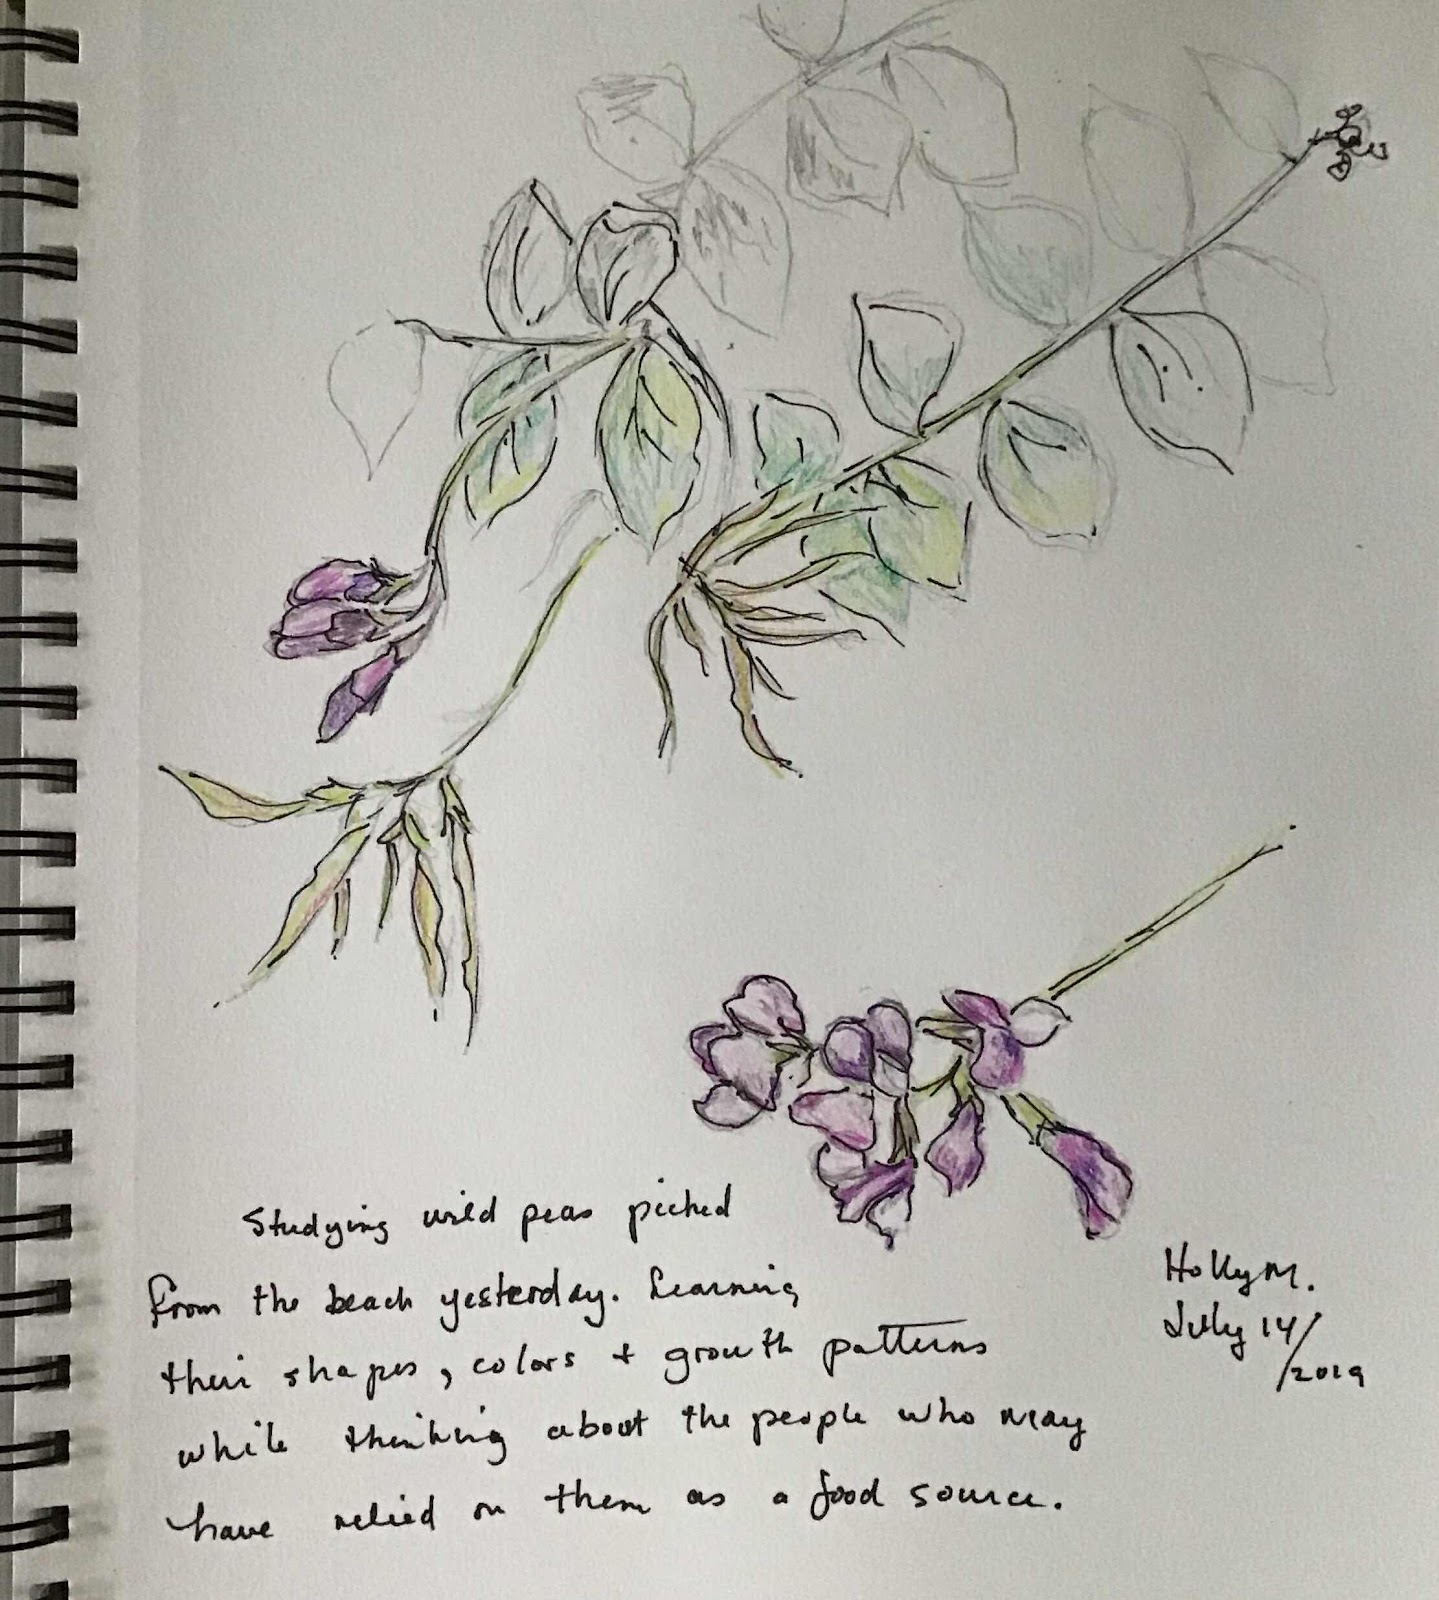 Studying wild peas picked
from the beach yesterday. Learning
their shapes, colors + growth patterns
while thinking about the people who may
have relied on them as a food source.
Holly M.
July 14/
2019